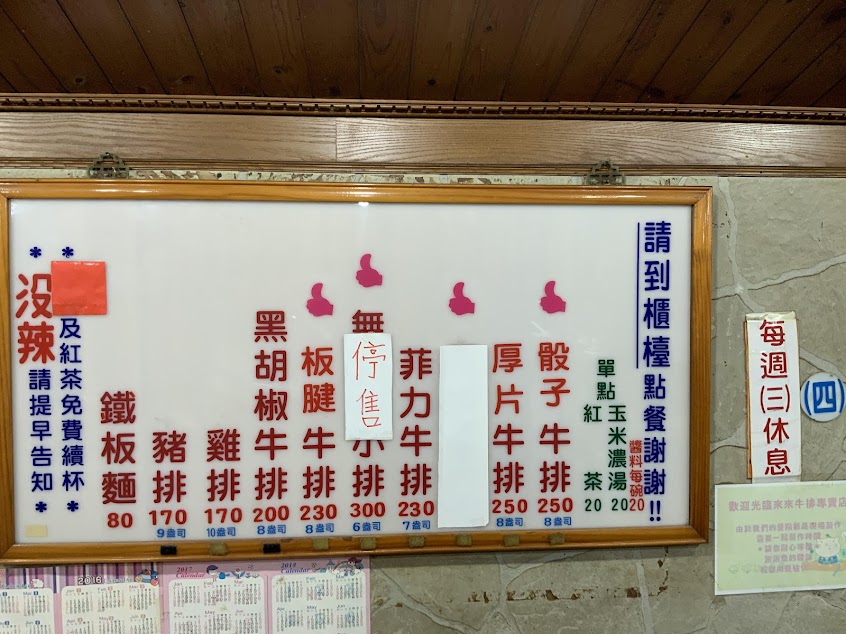 請到櫃檯點餐謝謝!!
醬料每碗20
單點
玉米濃湯 20
紅茶 20
骰子牛排 250 8盎司
厚片牛排 250
菲力牛排 230 7盎司
無
停售
小排 300 6盎司
板腱牛排 230 8盎司
黑胡椒牛排 200 8盎司
雞排 170 10盎司
豬排 170 9盎司
鐵板麵 80
*
及紅茶免費續杯*
*沒辣請提早告知*
每週(三)休息
(四)
歡迎光臨來來牛排專賣店
2016
2017 Calendar
2018 Calendar